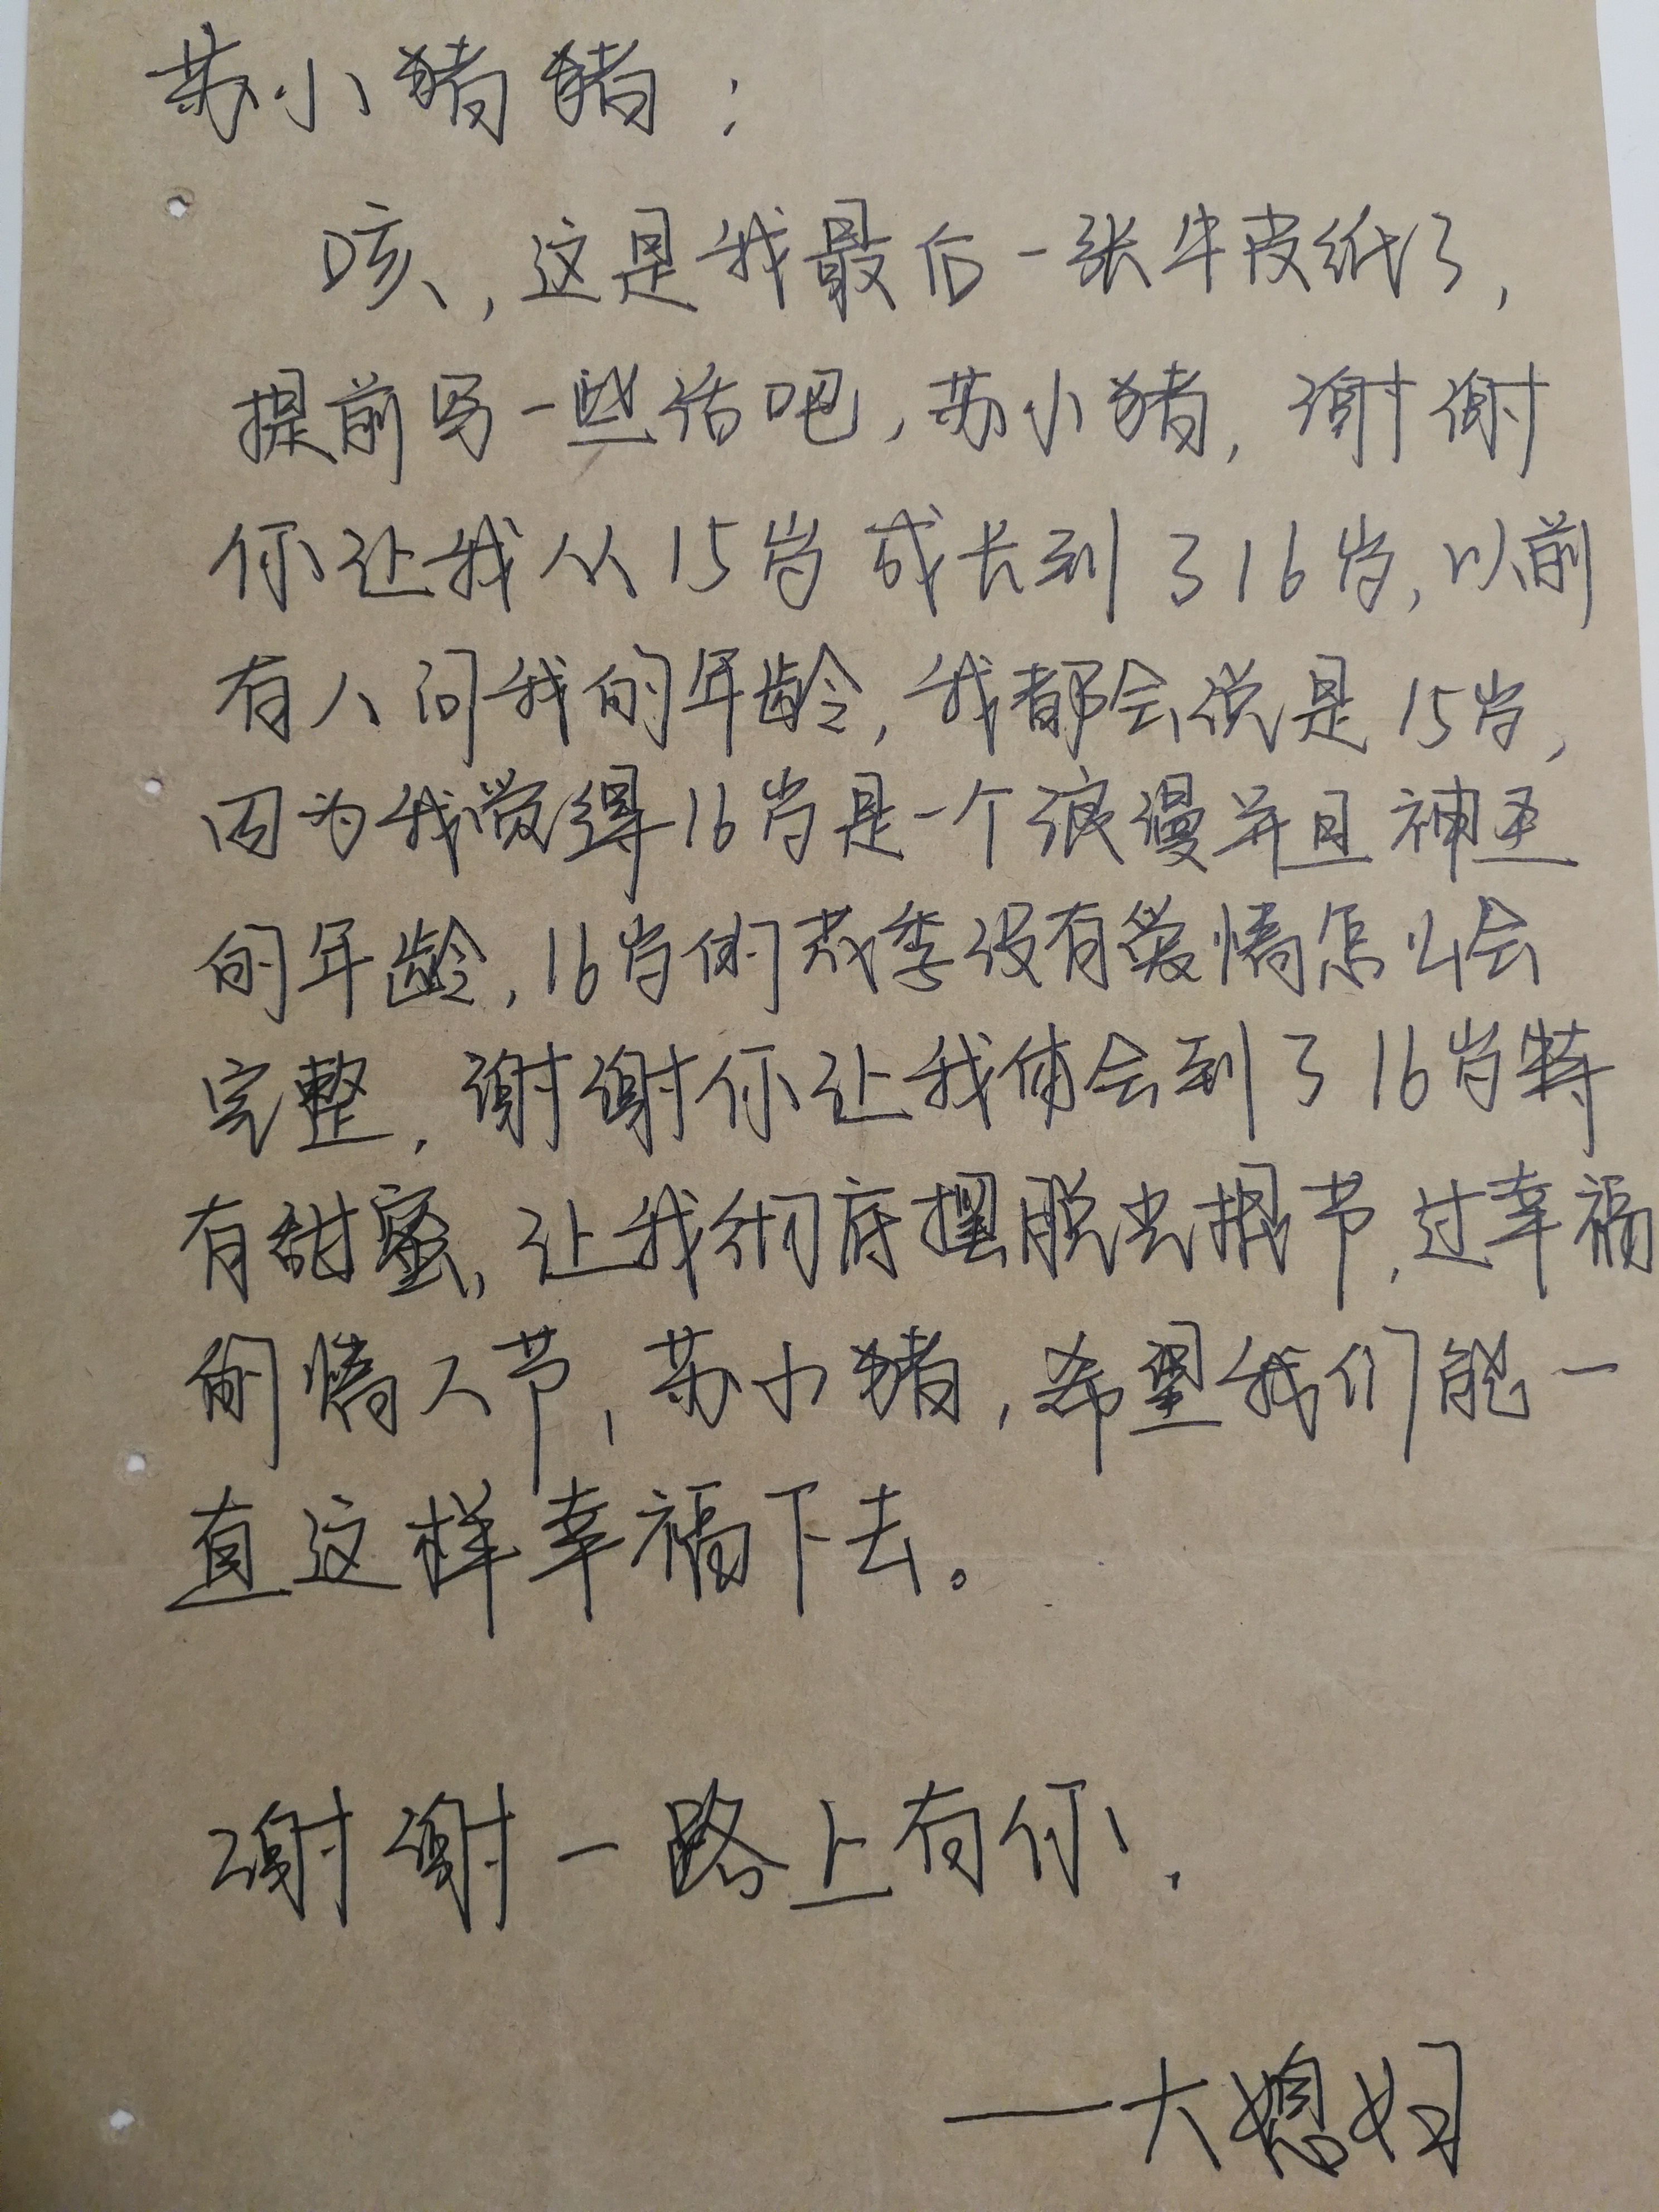 苏小猪猪：
咳，这是我最后一张牛皮纸了，
提前写一些话吧，苏小猪，谢谢
你让我从15岁成长到了16岁，以前
有人问我的年龄，我都会说是15岁，
因为我觉得16岁是一个浪漫并且神圣
的年龄，16岁的花季没有爱情怎么会
完整，谢谢你让我体会到了16岁特
有甜蜜，让我彻底摆脱光棍节，过幸福
的情人节，苏小猪，希望我们能一
直这样幸福下去。
谢谢一路上有你，
——大媳妇